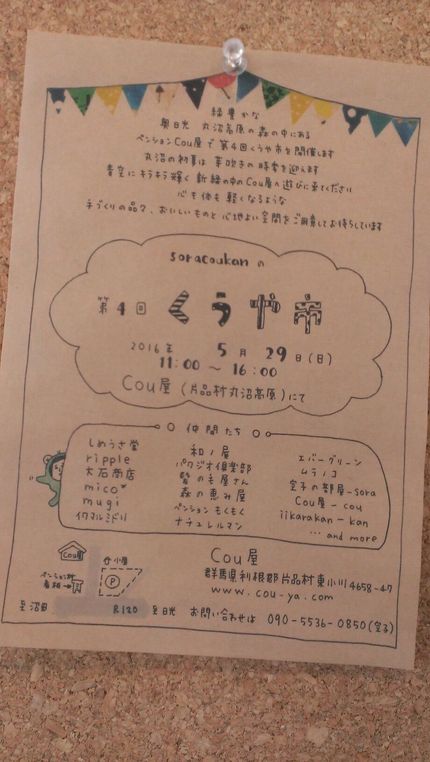 緑豊かな
奥日光 丸沼高原の森の中にある
ペンションCou屋で第4回くうや市を開催します
丸沼の初夏は 芽吹きの時季を迎えます
青空にキラキラ輝く 新緑の中のCou屋へ遊びに来てください
心も体も軽くなるような
手づくりの品々、おいしいものと心地よい空間をご用意してお待ちしています
soracoukan の
第4回 くうや市
2016年 5月 29日(日)
11:00 〜 16:00
Cou屋 (片品村丸沼高原)にて
仲間たち
しめうさ堂
ripple
大石商店
mico*
mugi
イワマルミドリ
和ノ屋
パクジオ倶楽部
髪のも屋さん
森の恵み屋
ペンション もくもく
ナチュレルマン
エバーグリーン
ムラノコ
空子の部屋-sora
Cou屋 - cou
iikarakan - kan
... and more
Cou屋
ペンション村
看板
小屋
P
至沼田 R120 至日光
Cou屋
群馬県利根郡片品村東小川4658-47
www.cou-ya.com
お問い合わせは 090-5536-0850(空子)